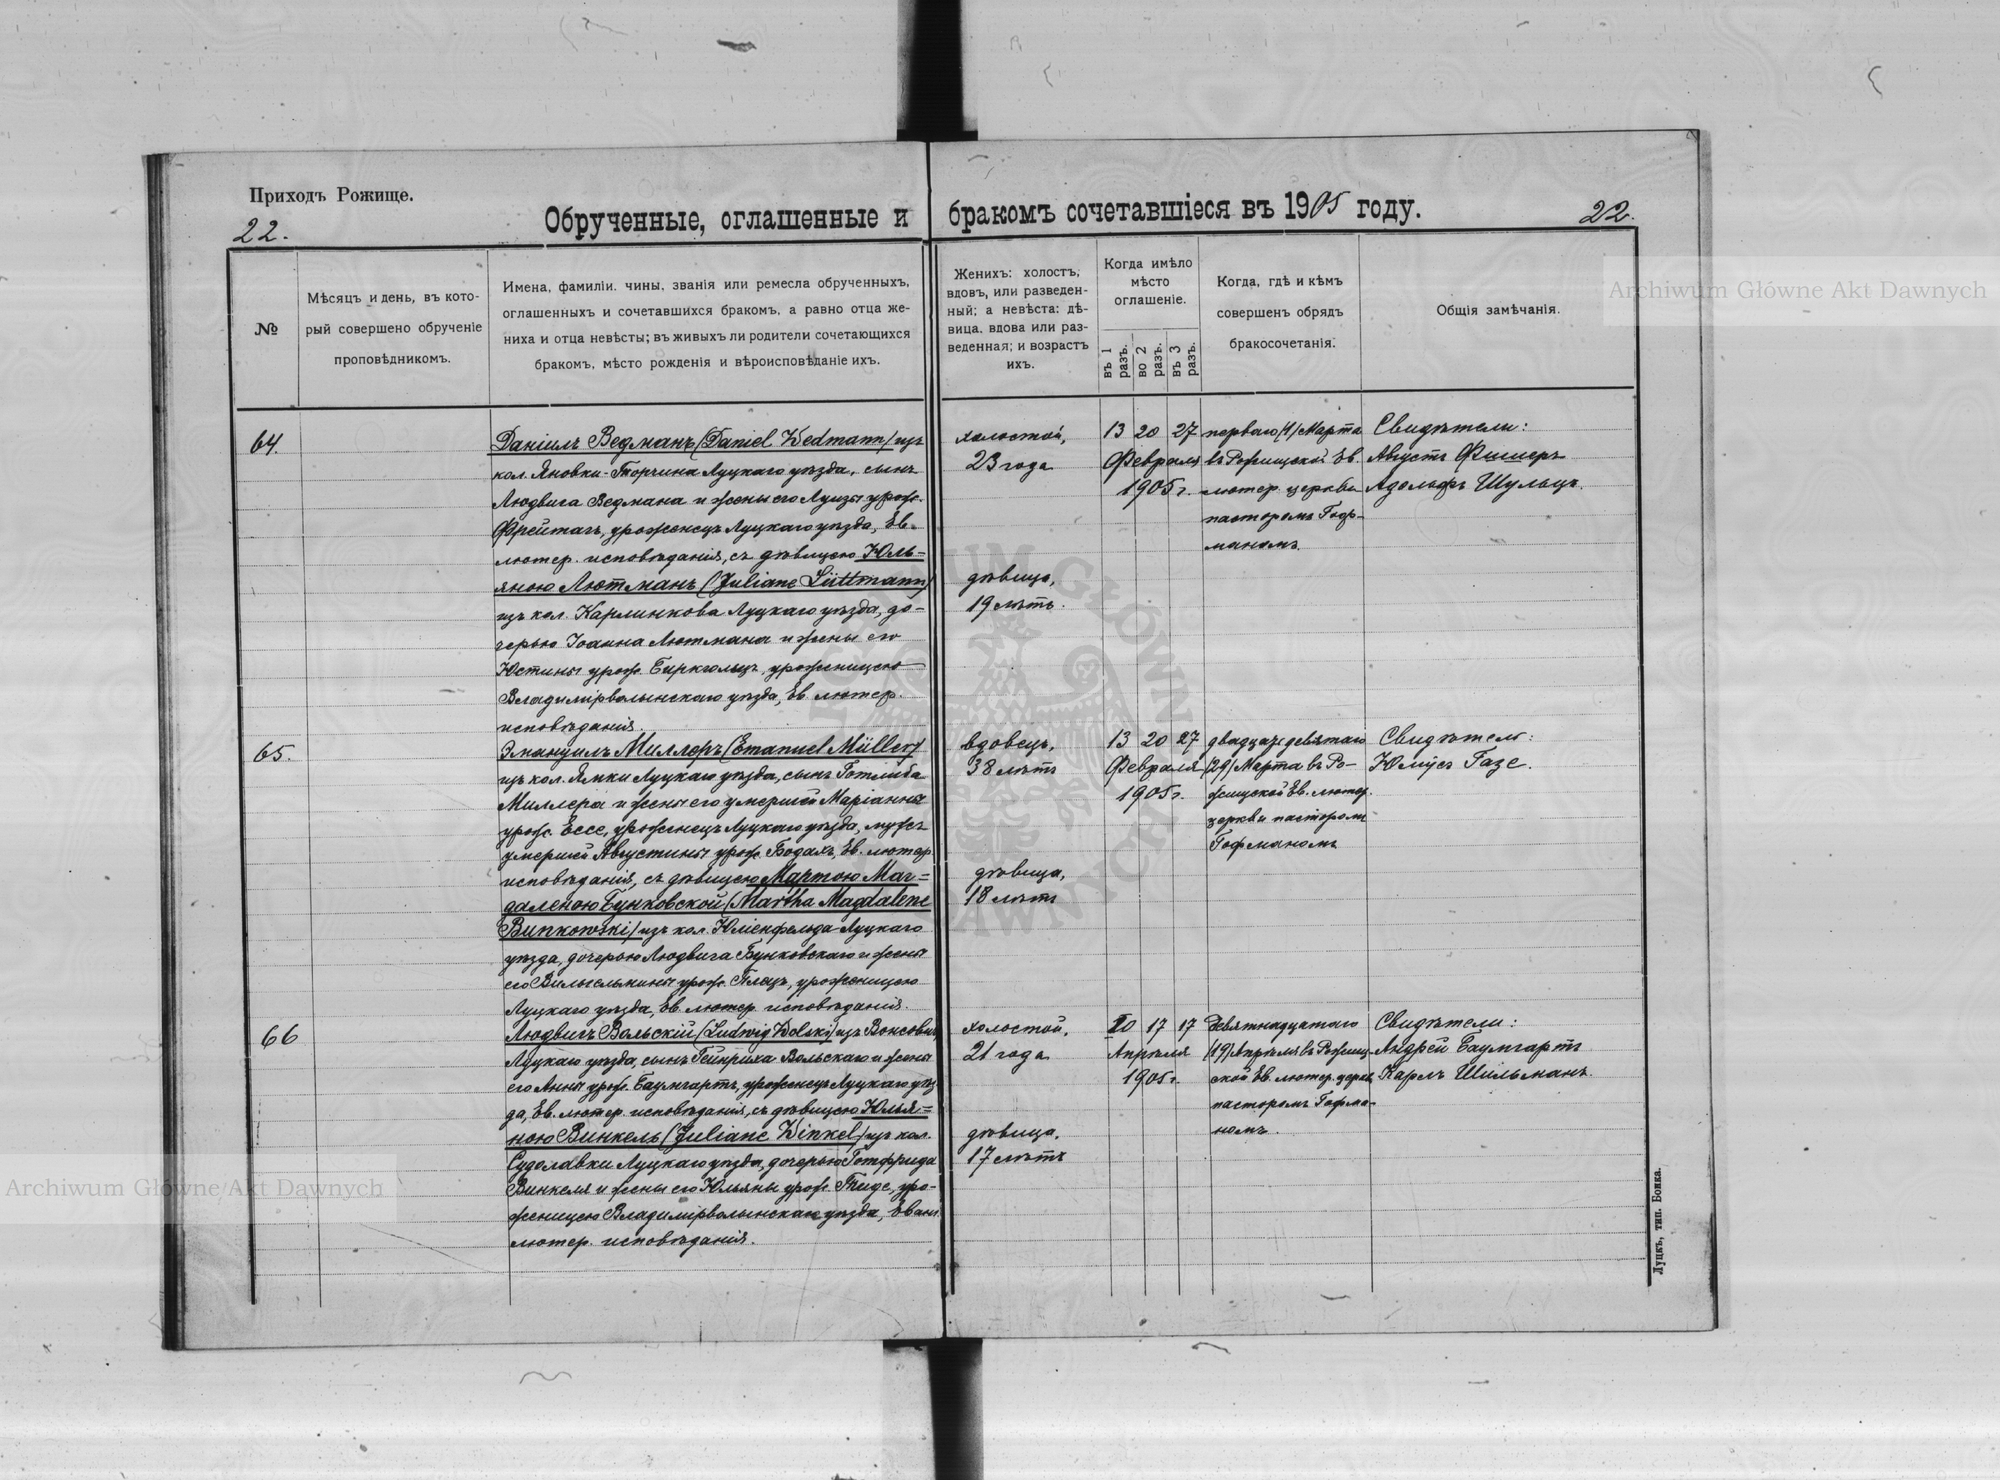 Приходъ Рожище.
22.
Обрученные, оглашенные и бракомъ сочетавшіеся въ 1905 году.
22.
№
Мѣсяцъ и день, въ кото-
рый совершено обрученіе
проповѣдникомъ.
Имена, фамиліи, чины, званія или ремесла обрученныхъ,
оглашенныхъ и сочетавшихся бракомъ, а равно отца же-
ниха и отца невѣсты; въ живыхъ ли родители сочетающихся
бракомъ, мѣсто рожденія и вѣроисповѣданіе ихъ.
Женихъ: холостъ,
вдовъ, или разведен-
ный; а невѣста: дѣ-
вица, вдова или раз-
веденная; и возрастъ
ихъ.
Когда имѣло
мѣсто
оглашеніе.
въ 1 разъ.
во 2 разъ.
въ 3 разъ.
Когда, гдѣ и кѣмъ
совершенъ обрядъ
бракосочетанія.
Общія замѣчанія.
64.
Даніилъ Ведманъ (Daniel Wedmann) изъ
кол. Яновки-Торчина Луцкаго уѣзда, сынъ
Людвига Ведмана и жены его Луизы урож.
Фрейтагъ, уроженецъ Луцкаго уѣзда, Ев.-
лютер. исповѣданія, съ дѣвицею Юль-
яною Лютманъ (Juliane Lüttmann)
изъ кол. Карлинкова Луцкаго уѣзда, до-
черью Іоанна Лютмана и жены его
Юстины урож. Биркгольцъ, уроженицею
Владимірволынскаго уѣзда, Ев. лютер.
исповѣданія.
холостой,
23 года
дѣвица,
19 лѣтъ.
13 20 27
Февраля
1905 г.
перваго (1) Марта
въ Рожищской Ев.
лютер. церкви
пасторомъ Гоф-
маномъ.
Свидѣтели:
Августъ Фишеръ
Адольфъ Шульцъ.
65.
Эмануилъ Миллеръ (Emanuel Müller)
изъ кол. Ямки Луцкаго уѣзда, сынъ Готлиба
Миллера и жены его умершей Маріанны
урож. Ессе, уроженецъ Луцкаго уѣзда, мужъ
умершей Августины урож. Бодахъ, Ев. лютер.
исповѣданія, съ дѣвицею Мартою Маг-
даленою Бунковской (Martha Magdalene
Bunkowski) изъ кол. Юліенфельда Луцкаго
уѣзда, дочерью Людвига Бунковскаго и жены
его Вильгельмины урож. Плецъ, уроженицею
Луцкаго уѣзда, Ев. лютер. исповѣданія.
вдовецъ,
38 лѣтъ
дѣвица,
18 лѣтъ
13 20 27
Февраля
1905 г.
двадцать девятаго
(29) Марта въ Ро-
жищской Ев. лютер.
церкви пасторомъ
Гофманомъ
Свидѣтель:
Юлiусъ Газе.
66
Людвигъ Вольскій (Ludwig Wolski) изъ Вонсовичъ
Луцкаго уѣзда, сынъ Гейнриха Вольскаго и жены
его Анны урож. Баумгартъ, уроженецъ Луцкаго уѣз
да, Ев. лютер. исповѣданія, съ дѣвицею Юлья-
ною Винкель (Juliane Winkel) изъ кол.
Судолавки Луцкаго уѣзда, дочерью Готфрида
Винкеля и жены его Юльяны урож. Тиде, уро-
женицею Владимірволынскаго уѣзда, Еван.
лютер. исповѣданія.
холостой,
21 года
дѣвица,
17 лѣтъ
10 17 17
Апрѣля
1905 г.
Девятнадцатаго
(19) Апрѣля въ Рожищ-
ской Ев. лютер. церкв.
пасторомъ Гофма-
номъ.
Свидѣтели:
Андрей Баумгартъ
Карлъ Шильманъ.
Луцкъ, тип. Бонка.
Archiwum Główne Akt Dawnych
Archiwum Główne Akt Dawnych